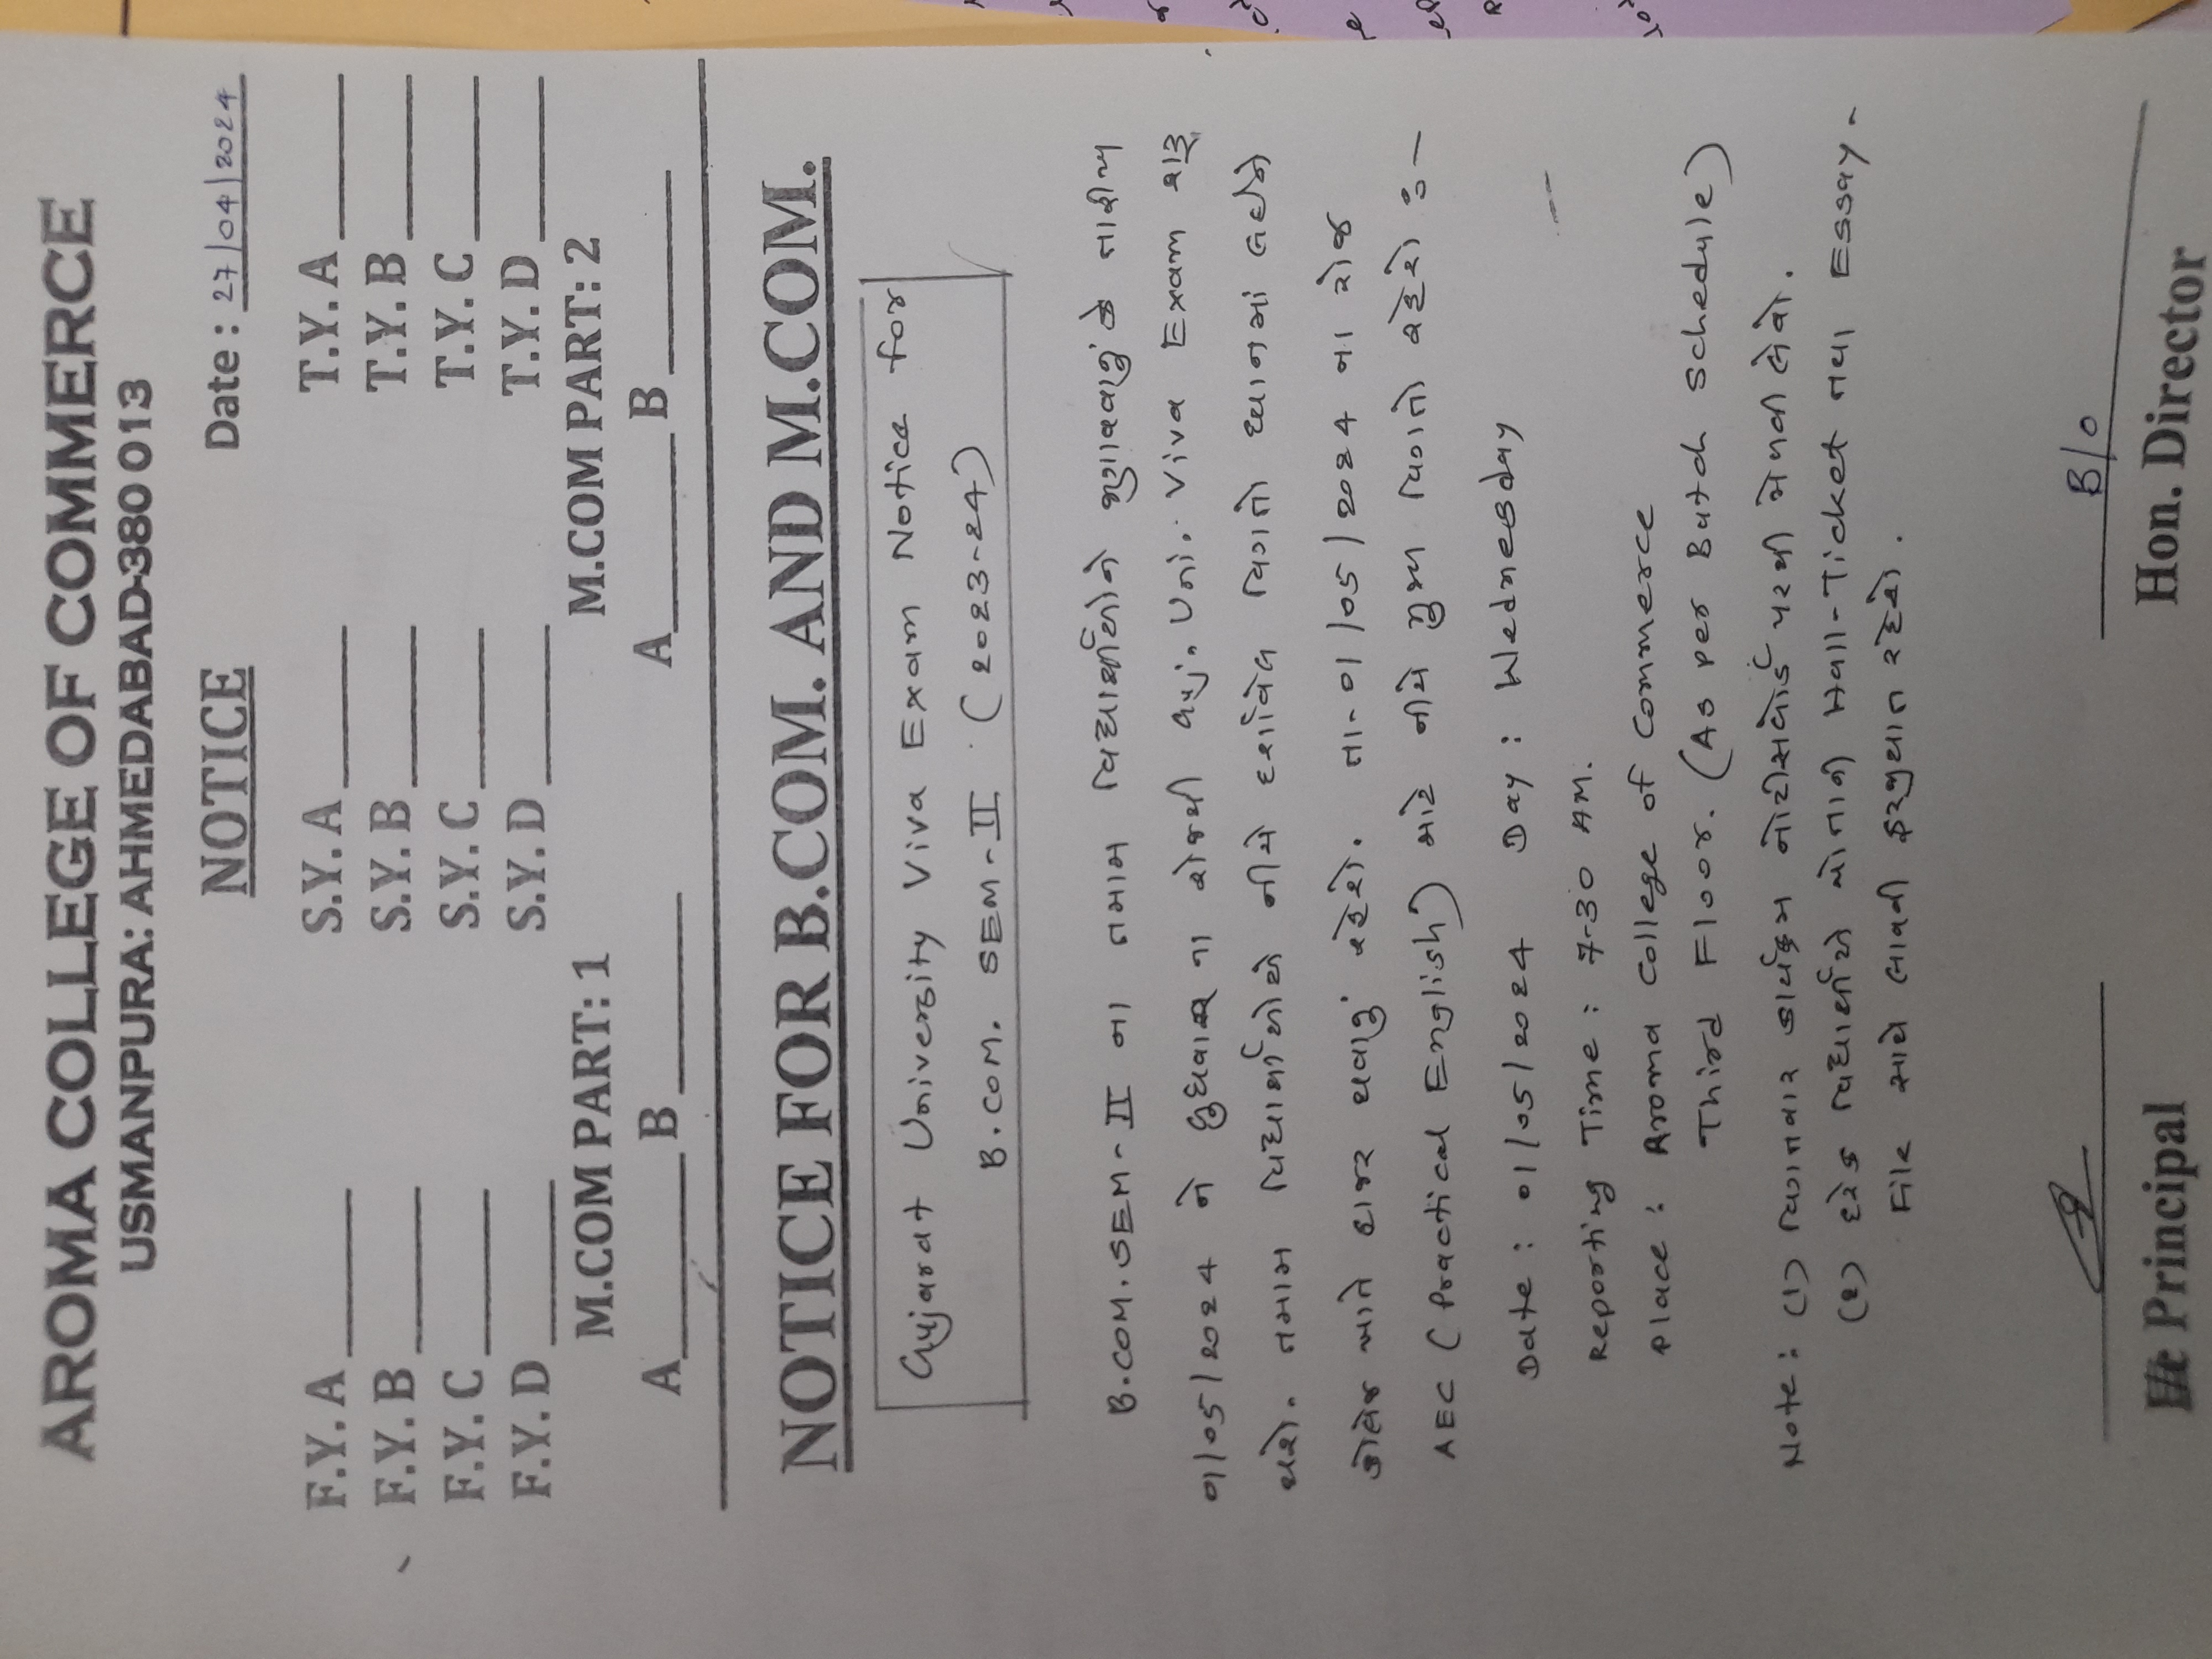 AROMA COLLEGE OF COMMERCE
USMANPURA: AHMEDABAD-380 013
NOTICE Date : 27/04/2024
F.Y. A S.Y. A T.Y. A
F.Y. B S.Y. B T.Y. B
F.Y. C S.Y. C T.Y. C
F.Y. D S.Y. D T.Y. D
M.COM PART: 1 M.COM PART: 2
A B A B
NOTICE FOR B.COM. AND M.COM.
Gujarat University Viva Exam Notice for
B.COM. SEM-II (2023-24)
B.COM. SEM-II ના તમામ વિદ્યાર્થીઓને જણાવવાનું કે તારીખ
01/05/2024 ને બુધવાર ના રોજથી Guj. Uni. Viva Exam શરૂ
થશે. તમામ વિદ્યાર્થીઓએ નીચે દર્શાવેલ વિગતો ધ્યાનમાં લઈને
કોલેજ ખાતે હાજર થવાનું રહેશે. તા-01/05/2024 ના રોજ
AEC (Practical English) માટે નીચે મુજબ વિગતો રહેશે :-
Date : 01/05/2024 Day : Wednesday
Reporting Time : 7-30 AM.
Place : Aroma College of Commerce
Third Floor. (As per Batch Schedule)
Note : (1) વિગતવાર કાર્યક્રમ નોટીસબોર્ડ પરથી મેળવી લેવો.
(2) દરેક વિદ્યાર્થીએ પોતાની Hall-Ticket તથા Essay-
File સાથે લાવવી ફરજીયાત રહેશે.
B/o
Principal Hon. Director